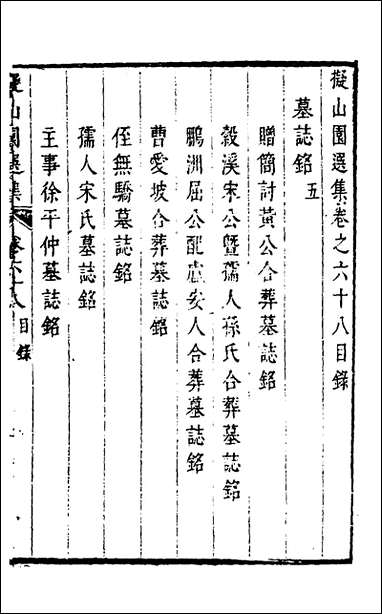 擬山園選集卷之六十八目錄
墓誌銘五
贈簡討黃公合葬墓誌銘
穀溪宋公暨孺人孫氏合葬墓誌銘
鵬洲屈公配盧安人合葬墓誌銘
曹愛坡合葬墓誌銘
侄無驕墓誌銘
孺人宋氏墓誌銘
主事徐平仲墓誌銘
擬山園選集 卷六十八 目錄